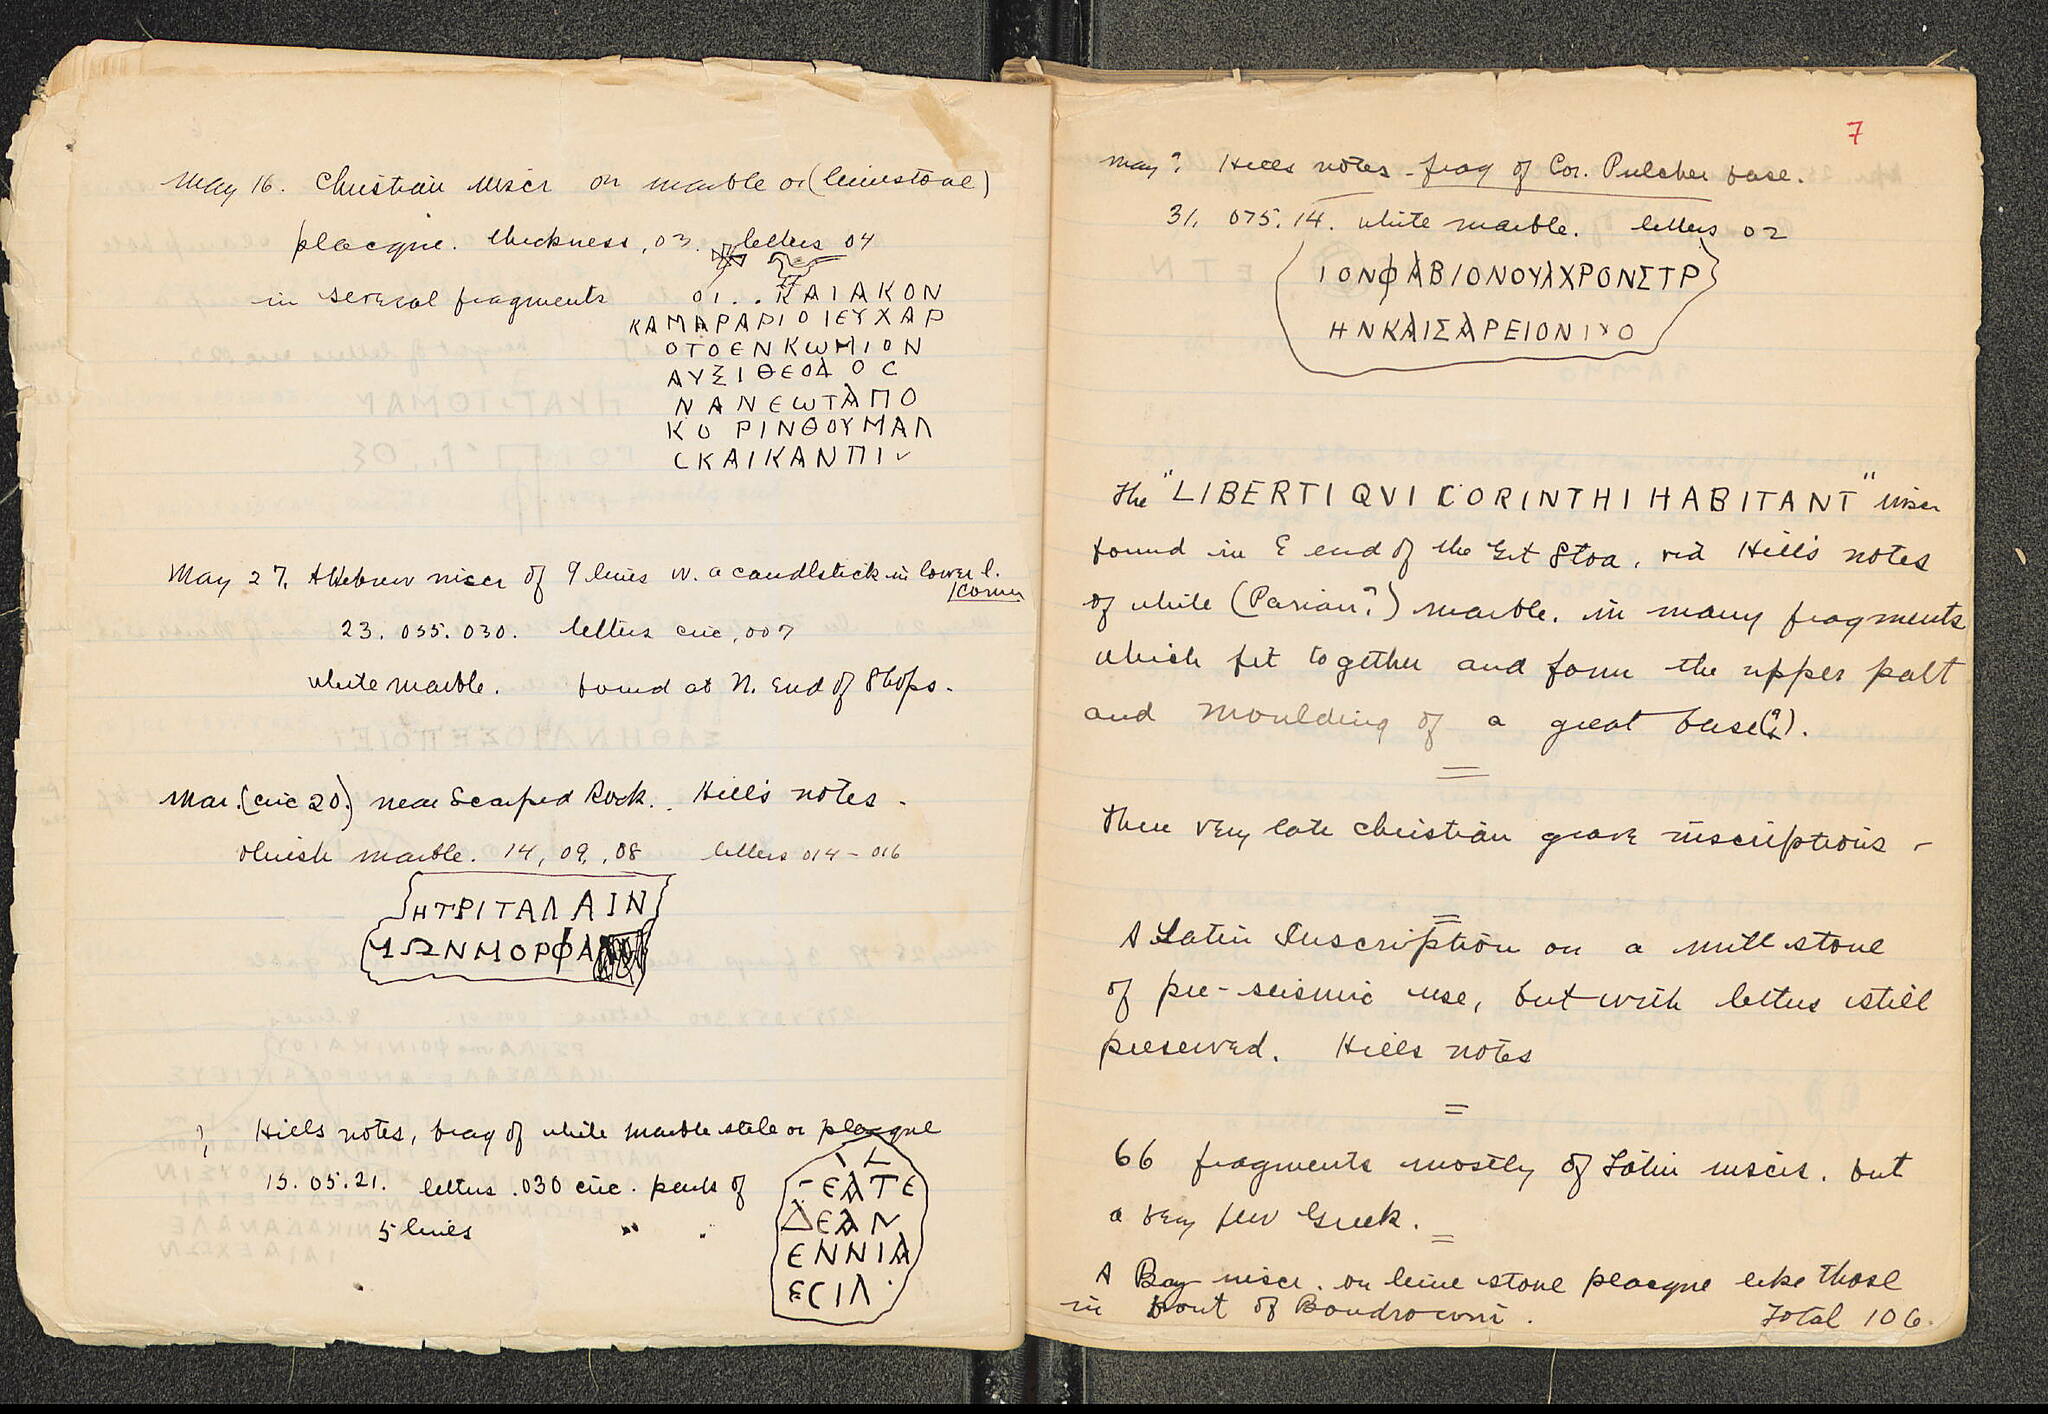 May 16. Christian inscr on marble or (limestone)
placque. thickness .03. letters 04
in several fragments
ΟΙ . . ΚΑΙΑΚΟΝ
ΚΑΜΑΡΑΡΙΟΙΕΥΧΑΡ
ΟΤΟΕΝΚωΜΙΟΝ
ΑΥΞΙΘΕΟΔΟC
ΝΑΝΕωΤΑΠΟ
ΚΟΡΙΝΘΟΥΜΑΛ
CΚΑΙΚΑΝΠΙ
May 27. A Hebrew inscr of 9 lines w. a candlstick in lower l.
corner
23. 035. 030. letters circ, 007
white marble. found at N. End of Shops.
Mar. (circ 20.) near Scarped Rock. Hill's notes.
bluish marble. 14, 09, .08 letters 014 - 016
ΗΤΡΙΤΑΛΑΙΝ
ΩΝΜΟΡΦΑ
? Hills notes, frag of white marble stele or placque
13. 05. 21. letters .030 circ. parts of
5 lines " "
ΕΑΤΕ
ΔΕΑΝ
ΕΝΝΙΑ
ΕϽΙΛ
7
May ? Hills notes - frag of Cor. Pulcher base.
31. 075. 14. white marble. letters 02
ΙΟΝΦΑΒΙΟΝΟΥΑΧΡΟΝΣΤΡ
ΗΝΚΑΙΣΑΡΕΙΟΝΙΥΟ
The "LIBERTI QVI CORINTHI HABITANT" inscr
found in E end of the Grt Stoa, vid Hill's notes
of white (Parian?) marble. in many fragments
which fit together and form the upper palt
and moulding of a great base(?).
=
Three very late Christian grave inscriptions -
=
A Latin Inscription on a mill stone
of pre-seismic use, but with letters still
preserved. Hills notes
=
66 fragments mostly of Latin inscrs. but
a very few Greek.
=
A Byz inscr. on lime stone placque like those
in front of Boudroumi. Total 106.